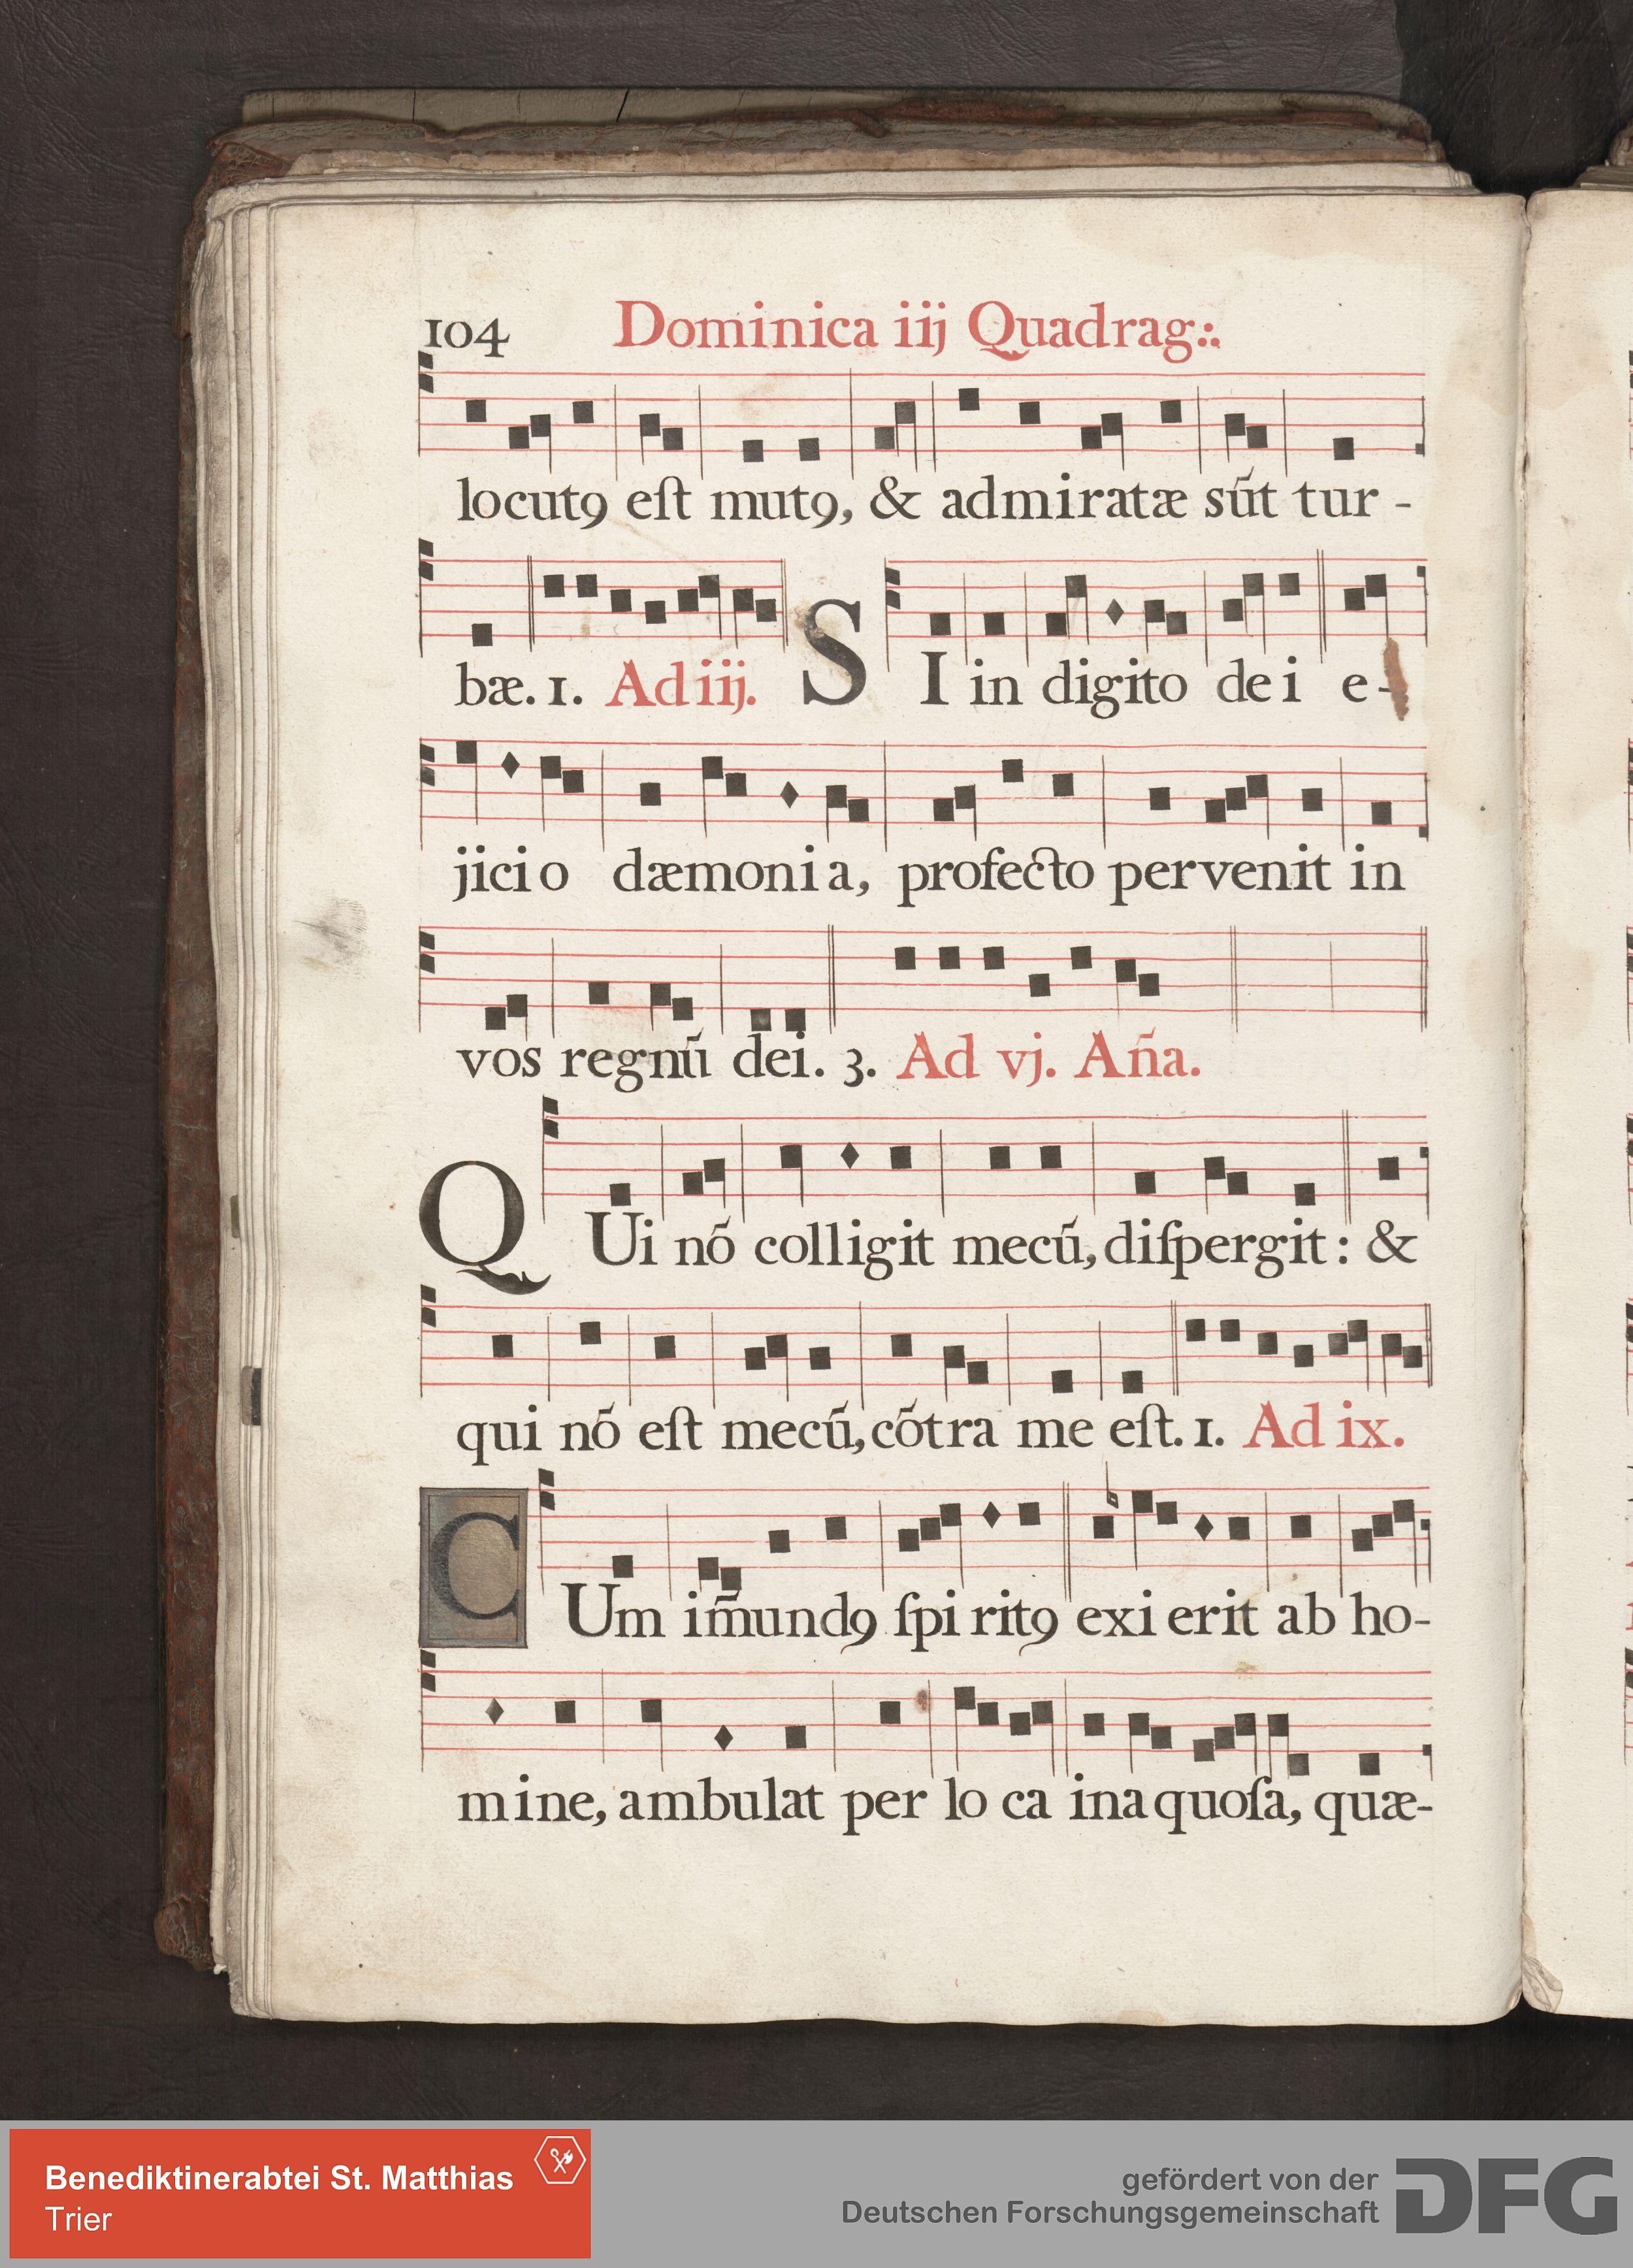 104 Dominica iij Quadrag:.
locutꝯ eſt mutꝯ, & admiratæ sũt tur-
bæ. 1. Ad iij. SI in digito dei e-
jicio dæmonia, profecto pervenit in
vos regnũ dei. 3. Ad vj. Aña.
QUi nõ colligit mecũ, diſpergit: &
qui nõ est mecũ, cõtra me eſt. 1. Ad ix.
CUm im̃undꝯ ſpiritꝯ exierit ab ho-
mine, ambulat per loca inaquoſa, quæ-
Benediktinerabtei St. Matthias
Trier
gefördert von der
Deutschen Forschungsgemeinschaft
DFG